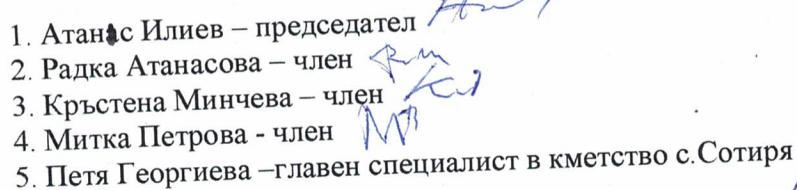 1. Атанас Илиев – председател
2. Радка Атанасова – член
3. Кръстена Минчева – член
4. Митка Петрова - член
5. Петя Георгиева –главен специалист в кметство с.Сотиря